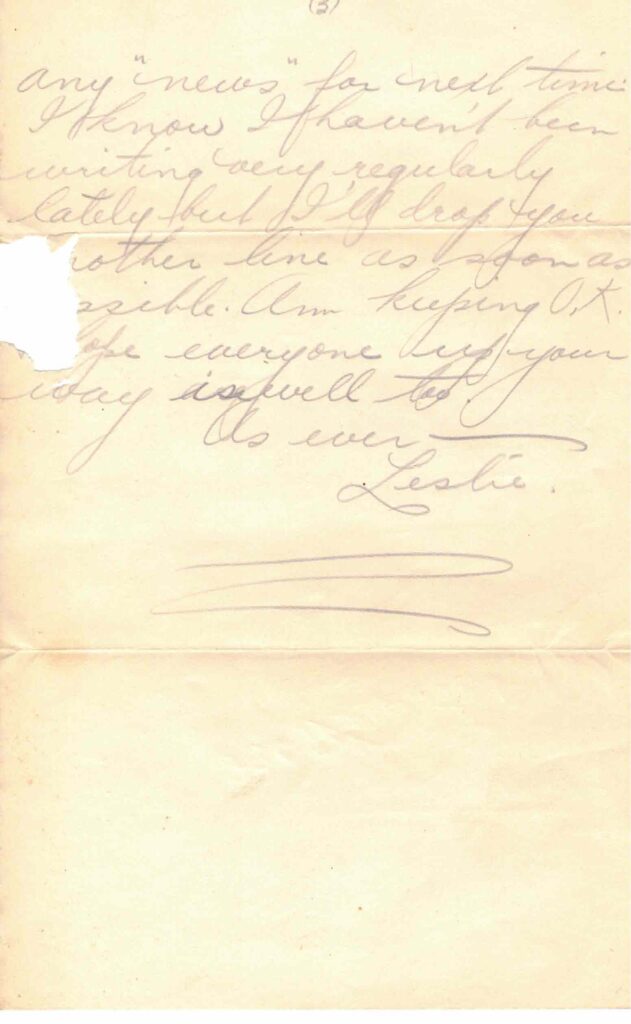 (3)
any "news" for next time.
I know I haven't been
writing very regularly
lately but I'll drop you
nother line as soon as
ssible. Am keeping O.K.
ope everyone up your
way is well too.
As ever —
Leslie.